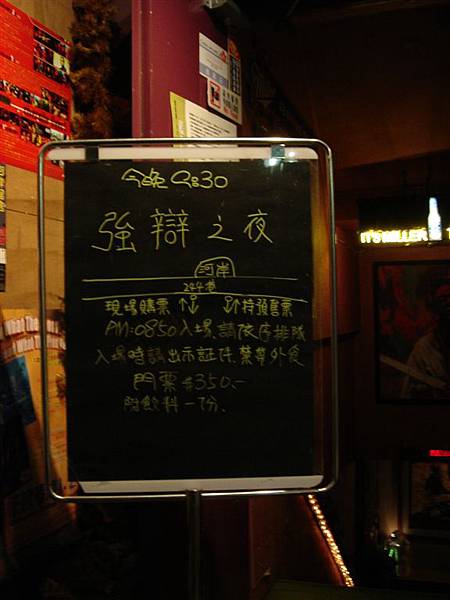 今晚 9:30
強辯之夜
河岸
244巷
現場購票 ↑↓ 持預售票
PM:0850入場,請依序排隊
入場時請出示証件,禁帶外食
門票$350.-
附飲料一份.
IT'S MILLER T